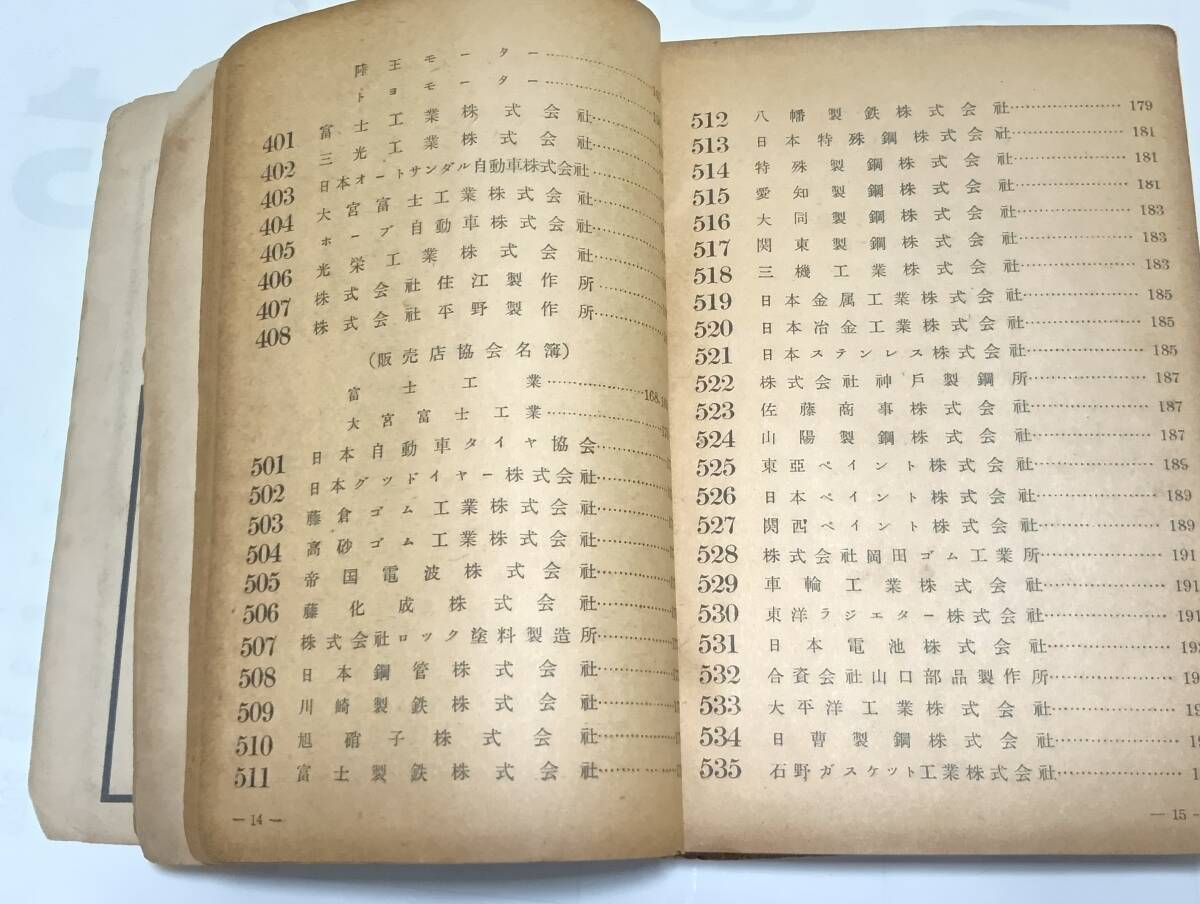 陸王モーター
トヨモーター
401 富士工業株式会社
402 三光工業株式会社
403 日本オートサンダル自動車株式会社
404 大宮富士工業株式会社
405 ホープ自動車株式会社
406 光栄工業株式会社
407 株式会社住江製作所
408 株式会社平野製作所
(販売店協会名簿)
富士工業……168,
大宮富士工業
501 日本自動車タイヤ協会
502 日本グッドイヤー株式会社
503 藤倉ゴム工業株式会社
504 高砂ゴム工業株式会社
505 帝国電波株式会社
506 藤化成株式会社
507 株式会社ロック塗料製造所
508 日本鋼管株式会社
509 川崎製鉄株式会社
510 旭硝子株式会社
511 富士製鉄株式会社
— 14 —
512 八幡製鉄株式会社……179
513 日本特殊鋼株式会社……181
514 特殊製鋼株式会社……181
515 愛知製鋼株式会社……181
516 大同製鋼株式会社……183
517 関東製鋼株式会社……183
518 三機工業株式会社……183
519 日本金属工業株式会社……185
520 日本冶金工業株式会社……185
521 日本ステンレス株式会社……185
522 株式会社神戸製鋼所……187
523 佐藤商事株式会社……187
524 山陽製鋼株式会社……187
525 東亞ペイント株式会社……189
526 日本ペイント株式会社……189
527 関西ペイント株式会社……189
528 株式会社岡田ゴム工業所……191
529 車輪工業株式会社……191
530 東洋ラジエター株式会社……191
531 日本電池株式会社……193
532 合資会社山口部品製作所
533 大平洋工業株式会社
534 日曹製鋼株式会社
535 石野ガスケット工業株式会社
— 15 —